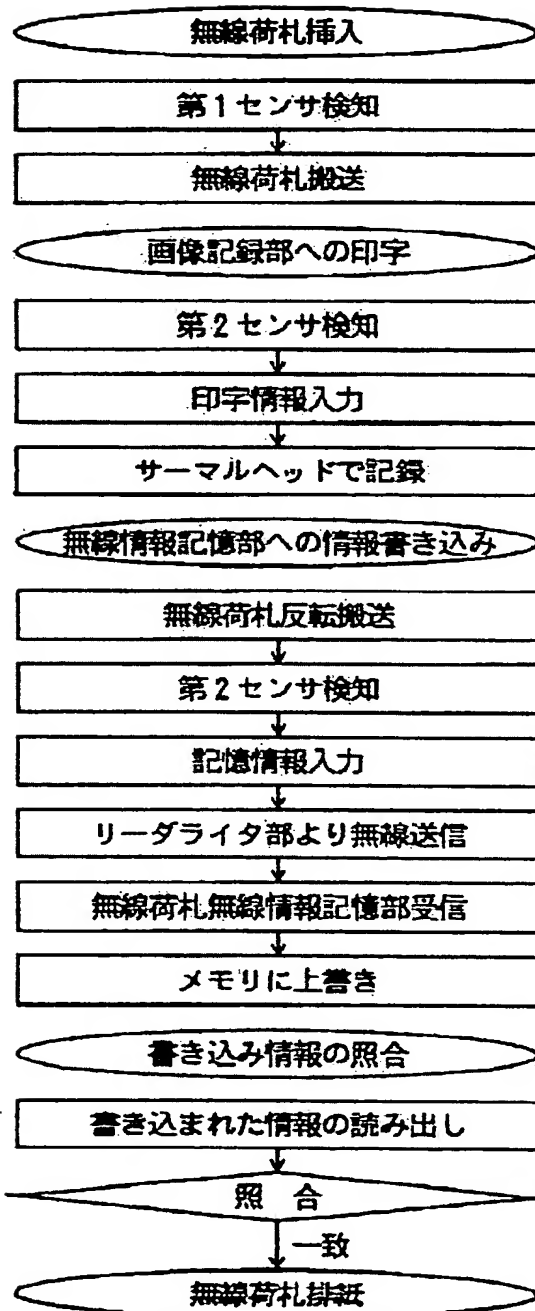 無線荷札挿入
第1センサ検知
無線荷札搬送
画像記録部への印字
第2センサ検知
印字情報入力
サーマルヘッドで記録
無線情報記憶部への情報書き込み
無線荷札反転搬送
第2センサ検知
記憶情報入力
リーダライタ部より無線送信
無線荷札無線情報記憶部受信
メモリに上書き
書き込み情報の照合
書き込まれた情報の読み出し
照 合
一致
無線荷札排紙